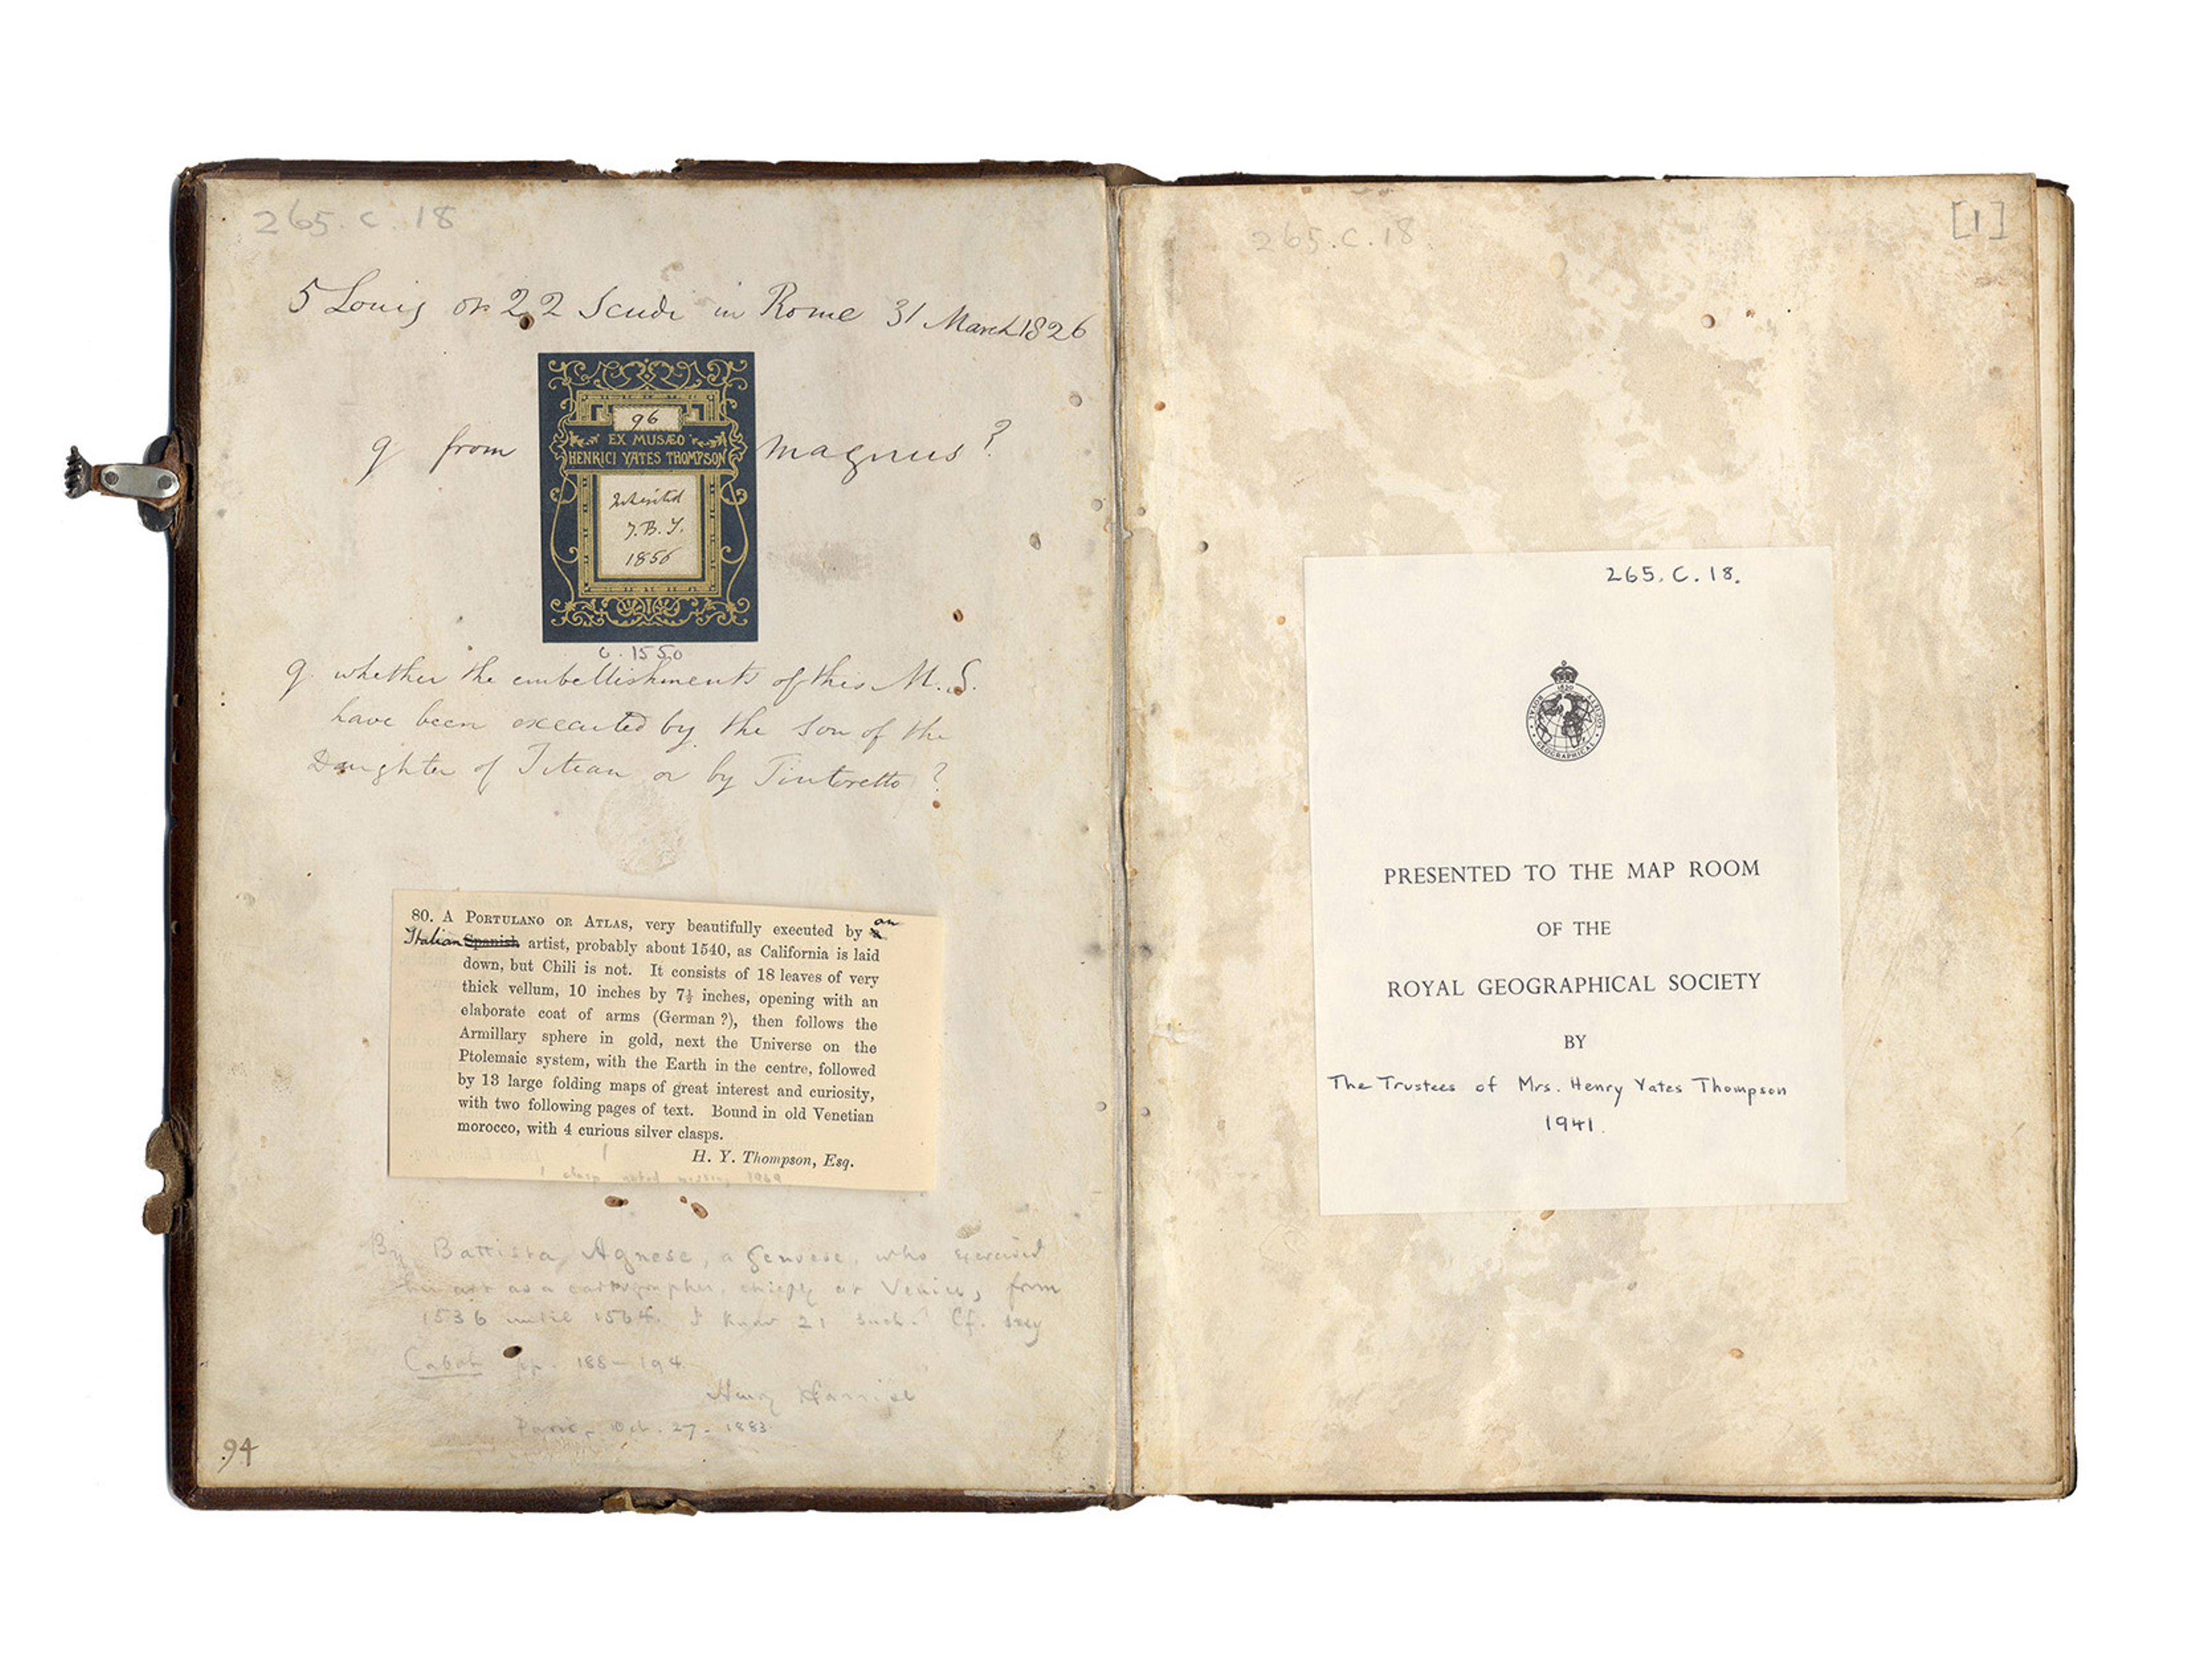 265. C. 18
5 Louis or 22 Scudi in Rome 31 March 1826
96
EX MUSÆO
HENRICI YATES THOMPSON
q from magnus?
Inherited
J.B.Y.
1856
c. 1550
q whether the embellishments of this M.S.
have been executed by the son of the
Daughter of Titian or by Tintoretto?
80. A PORTULANO OR ATLAS, very beautifully executed by a an
Italian Spanish artist, probably about 1540, as California is laid
down, but Chili is not. It consists of 18 leaves of very
thick vellum, 10 inches by 7½ inches, opening with an
elaborate coat of arms (German ?), then follows the
Armillary sphere in gold, next the Universe on the
Ptolemaic system, with the Earth in the centre, followed
by 13 large folding maps of great interest and curiosity,
with two following pages of text. Bound in old Venetian
morocco, with 4 curious silver clasps.
H. Y. Thompson, Esq.
1 clasp noted missing 1969
By Battista Agnese, a Genoese, who exercised
his art as a cartographer, chiefly at Venice, from
1536 until 1564. I know 21 such. Cf. my
Cabot pp. 188-194.
Henry Harrisse
Paris, Oct. 27. 1883.
94
265.C.18
[1]
265. C. 18.
1830
ROYAL GEOGRAPHICAL SOCIETY
PRESENTED TO THE MAP ROOM
OF THE
ROYAL GEOGRAPHICAL SOCIETY
BY
The Trustees of Mrs. Henry Yates Thompson
1941.